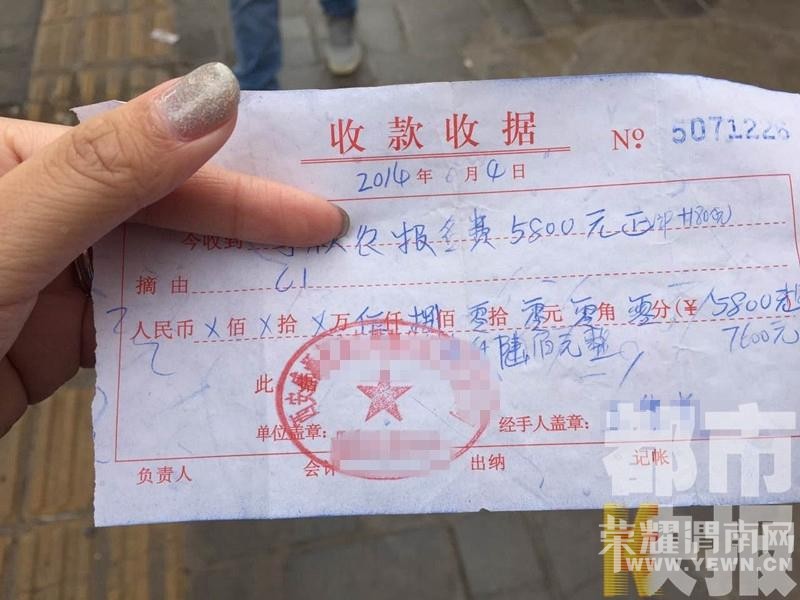 收款收据 № 5071226
2014年 月4日
今收到 报名费5800元正
摘由 C1
人民币 X佰X拾X万伍仟捌佰零拾零元零角零分(¥5800
陆佰元整 7600元
此据
单位盖章: 经手人盖章:
负责人 会计 出纳 记帐
都市
快报
荣耀渭南网
WWW.YEWN.CN